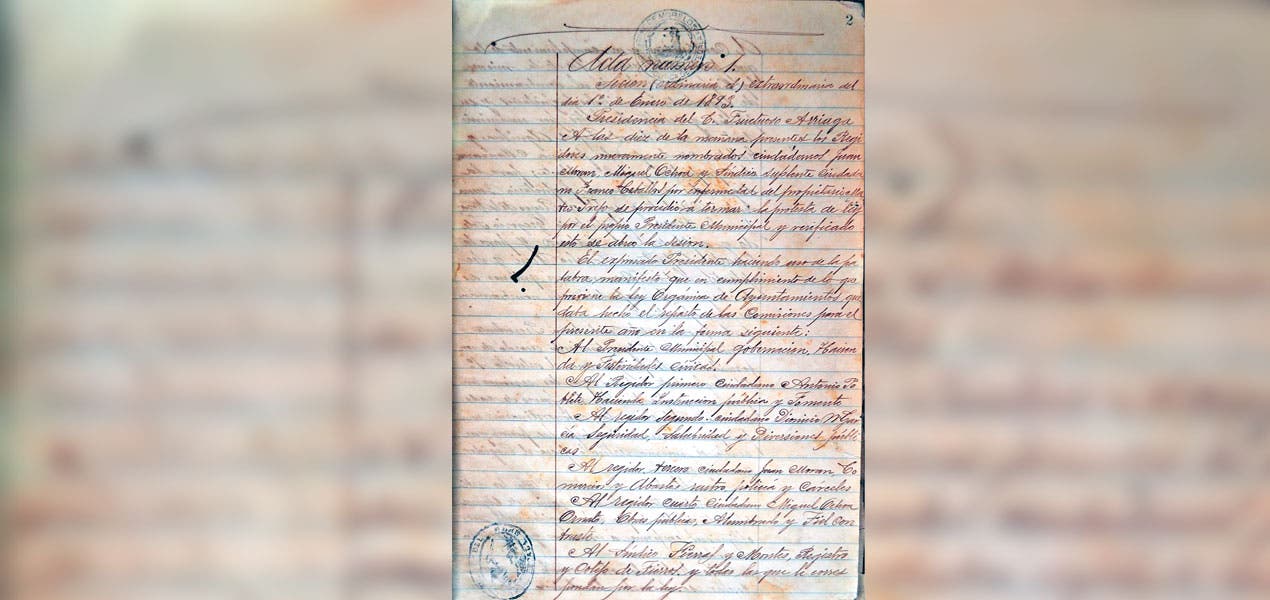 2
Acta numero 1.
Secion (ordinaria ó) extraordinaria del
dia 1º de Enero de 1893.
Presidencia del C. Fructuoso Arriaga
A las diez de la mañana presentes los Regi
dores nuevamente nombrados ciudadanos Juan
Moran, Miguel Ochoa y Síndico suplente ciudada
no Franco por enfermedad del propietario
Trejo se procedió á tomar la protesta de ley
por el propio Presidente Municipal y verificado
esto se abrió la sesion.
El expresado Presidente haciendo uso de la pa
labra, manifestó que en cumplimiento de lo qe
previene la Ley Orgánica de Ayuntamientos que
daba hecho el reparto de las Comisiones para el
presente año en la forma siguiente:
Al Presidente Municipal gobernacion, Hacien
da y Festividades civicas.
Al Regidor primero ciudadano Antonio
Hacienda Instruccion pública y Fomento
Al regidor segundo ciudadano Dionicio
Seguridad, Salubridad y Diversiones públi
cas
Al regidor tercero ciudadano Juan Moran, Co
mercio y Abastos rastro, policía y Cárceles
Al regidor cuarto Ciudadano Miguel Ochoa
Ornato, Obras públicas, Alumbrado y Fiel Con
traste.
Al Síndico y Montes, Registro
y Cotejo de fierros, y todas las que le corres
pondan por la ley.